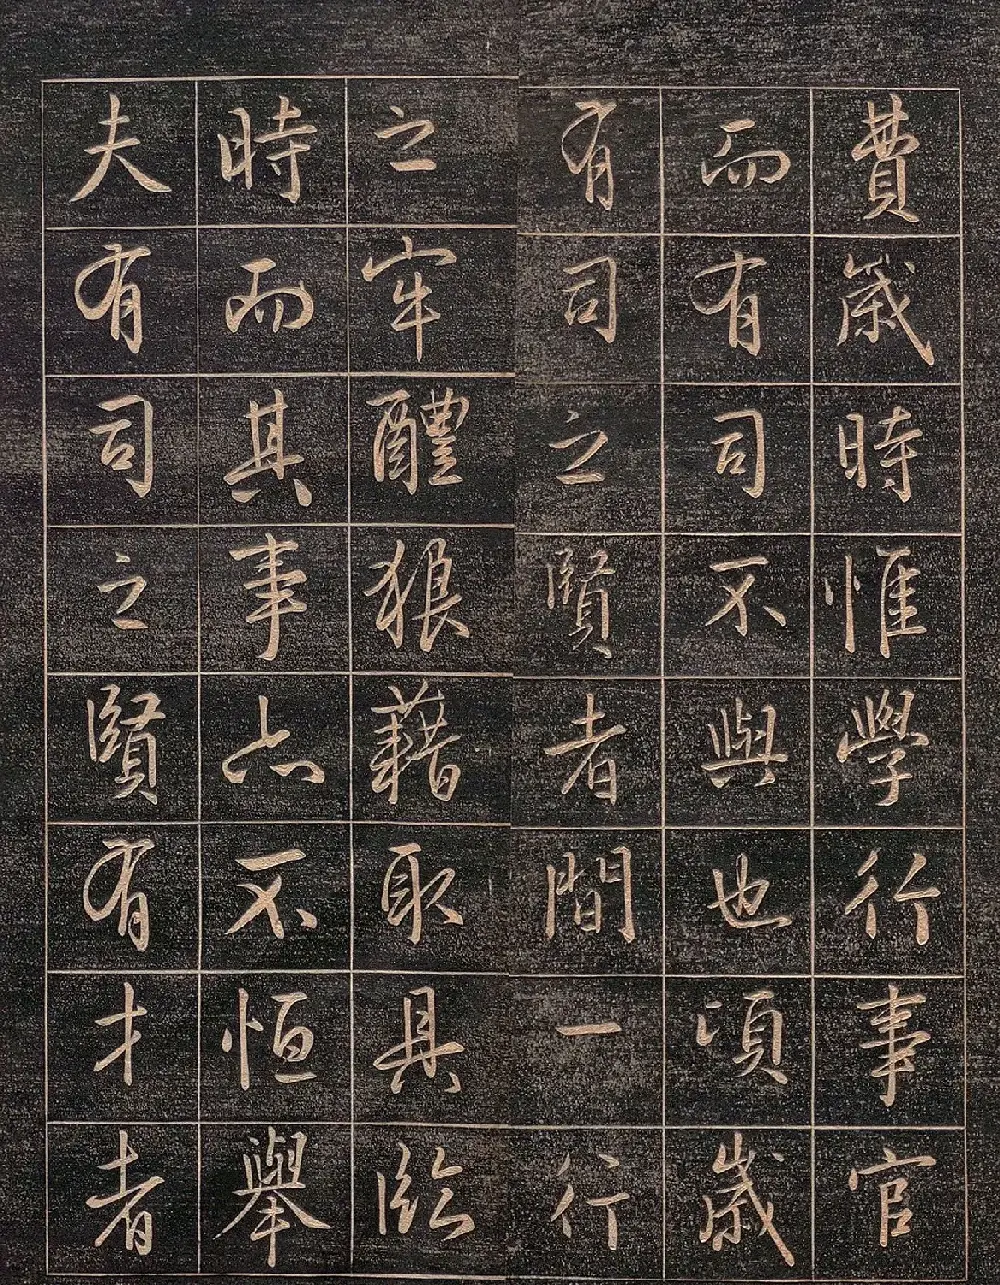 費歲時惟學行事官
而有司不與也頃歲
有司之賢者間一行
之牢醴狼藉取具臨
時而其事亦不恒舉
夫有司之賢有才者